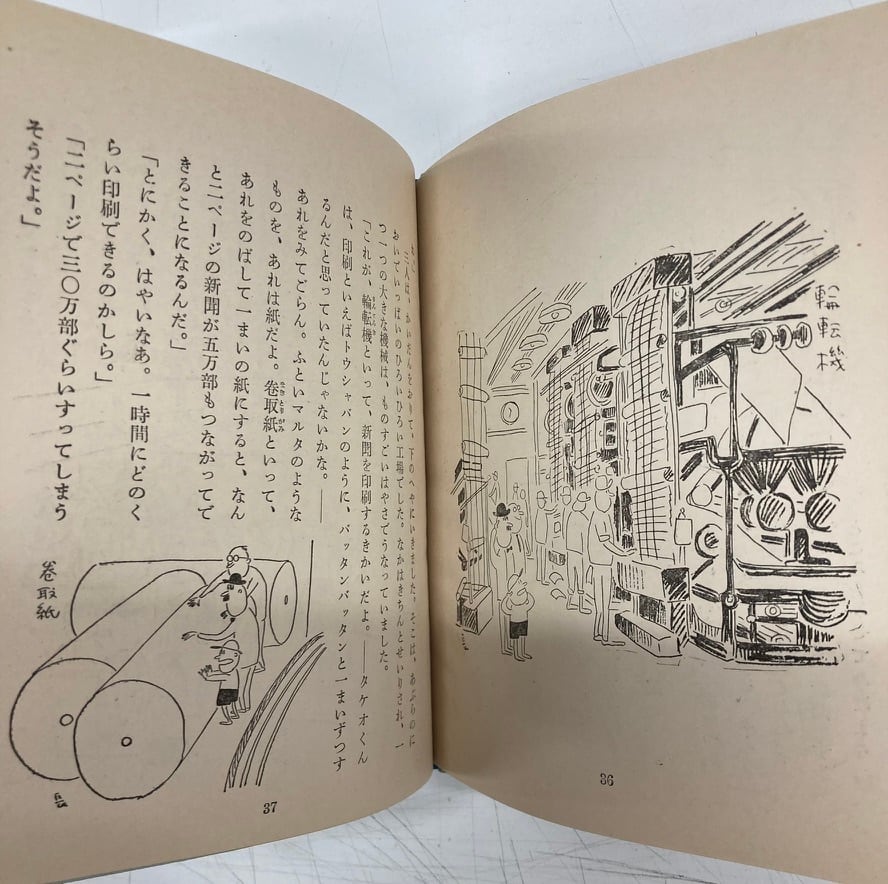 輪転機
36
三人は、かいだんをおりて、下のへやにいきました。そこは、あぶらのに
おいでいっぱいのひろいひろい工場でした。なかはきちんとせいりされ、一
つ一つの大きな機械は、ものすごいはやさでうなっていました。
「これが、輪転機といって、新聞を印刷するきかいだよ。――タケオくん
は、印刷といえばトウシャバンのように、バッタンバッタンと一まいずつす
るんだと思っていたんじゃないかな。――
あれをみてごらん。ふといマルタのような
ものを、あれは紙だよ。巻取紙といって、
あれをのばして一まいの紙にすると、なん
と二ページの新聞が五万部もつながってで
きることになるんだ。」
「とにかく、はやいなあ。一時間にどのく
らい印刷できるのかしら。」
「二ページで三〇万部ぐらいすってしまう
そうだよ。」
巻取紙
37